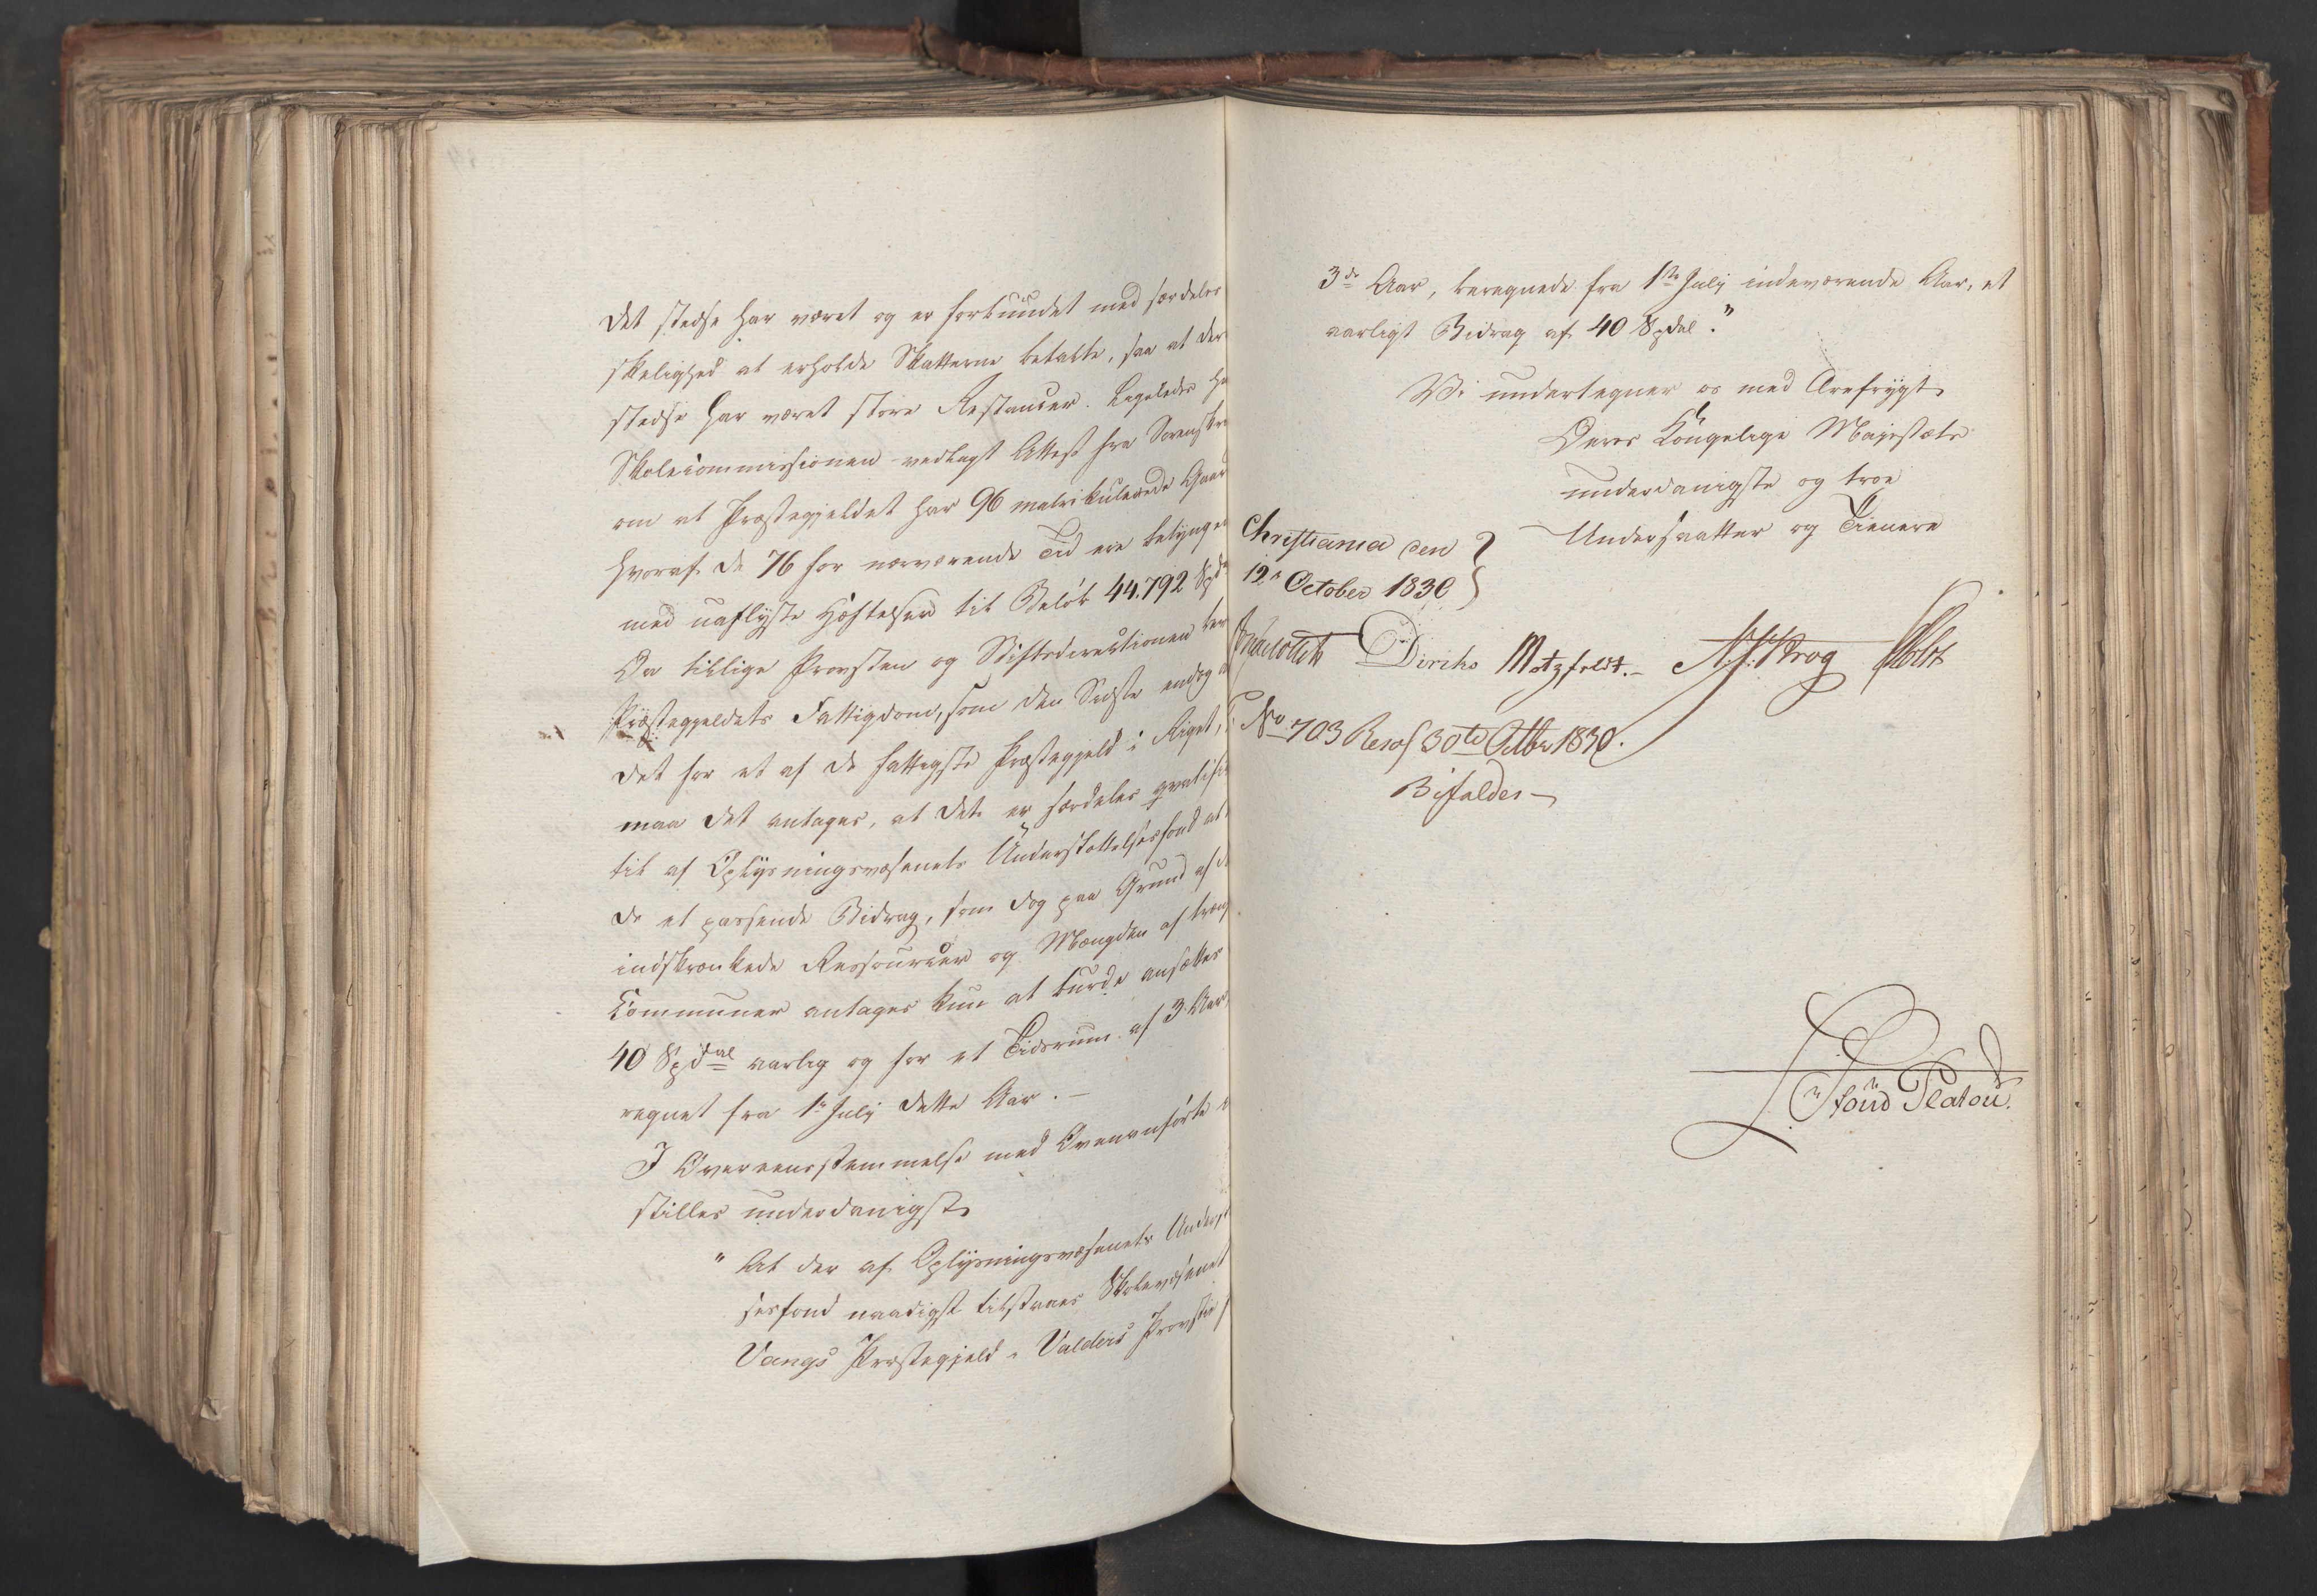 det stedse har været og er forbundet med særdeles
skelighed at erholde Skatterne betalte, saa at der
stedse har været store Restancer. Ligeledes ha
Skolecommissionen vedlagt Attest fra Sorenskri
om at Præstegjeldet har 96 matrikulerede Gaar
hvoraf de 76 for nærværende Tid ere betynge
med uaflyste Hæftelser til Beløb 44.792 Spd
Da tillige Provsten og Stiftsdirectionen be
Præstegjeldets Fattigdom, som den Sidste endog
det for et af de fattigste Præstegjeld i Riget,
maa det antages, at det er særdeles qvalifi
til af Oplysningsvæsenets Understøttelsesfond at
de et passende Bidrag, som dog paa Grund af d
indskrænkede Ressourcer og Mængden af træng
Communer antages kun at burde ansættes
40 Spdal aarlig og for et Tidsrum af 3 Aar
regnet fra 1 July dette Aar. -
I Overeensstemmelse med Ovenanførte i
stilles underdanigst
" At der af Oplysningsvæsenets Underst
sesfond naadigst tilstaaes Skolevæsenet
Vangs Præstegjeld, Valders Provstie
3de Aar, beregnede fra 1ste July indeværende Aar, et
aarligt Bidrag af 40 Spdal."
Vi undertegner os med Ærefrygt
Deres Kongelige Majestæts
underdanigste og troe
Undersaatter og Tienere
Christiania den
12 October 1830
Diriks Motzfeldt.- Krog Holst
No 703 Resol 30te Octbr 1830.
Bifaldes -
Stoud Platou.